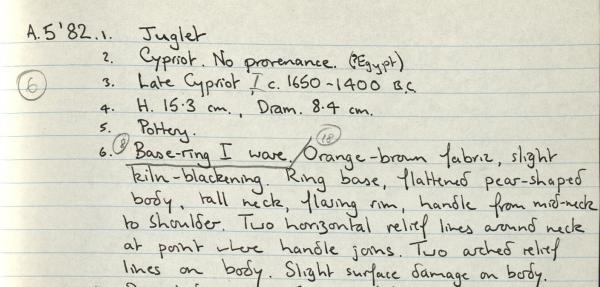 A.5'82.1. Juglet
2. Cypriot. No provenance. (?Egypt)
3. Late Cypriot I c. 1650-1400 B.C.
6
4. H. 15.3 cm., Diam. 8.4 cm.
5. Pottery.
18
6. 8 Base-ring I ware. / Orange-brown fabric, slight
kiln-blackening. Ring base, flattened pear-shaped
body, tall neck, flaring rim, handle from mid-neck
to shoulder. Two horizontal relief lines around neck
at point where handle joins. Two arched relief
lines on body. Slight surface damage on body.